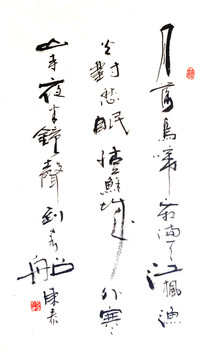 月落烏啼霜滿天江楓漁
火對愁眠姑蘇城外寒
山寺夜半鐘聲到客船陳泰